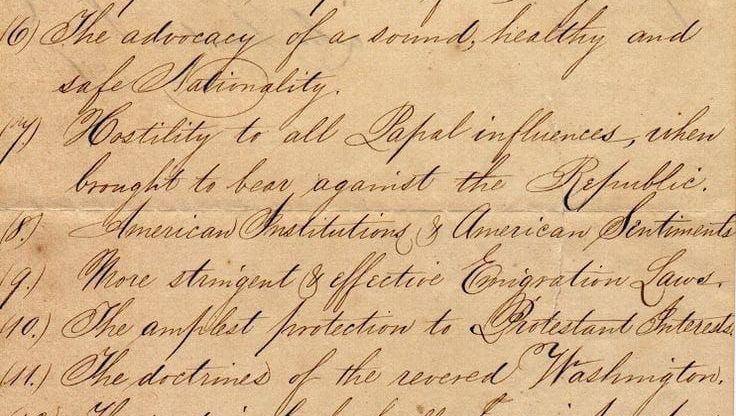 (6) The advocacy of a sound, healthy and
safe Nationality.
(7.) Hostility to all Papal influences, when
brought to bear against the Republic.
(8.) American Institutions & American Sentiments
(9.) More stringent & effective Emigration Laws.
(10.) The amplest protection to Protestant Interests.
(11.) The doctrines of the revered Washington.